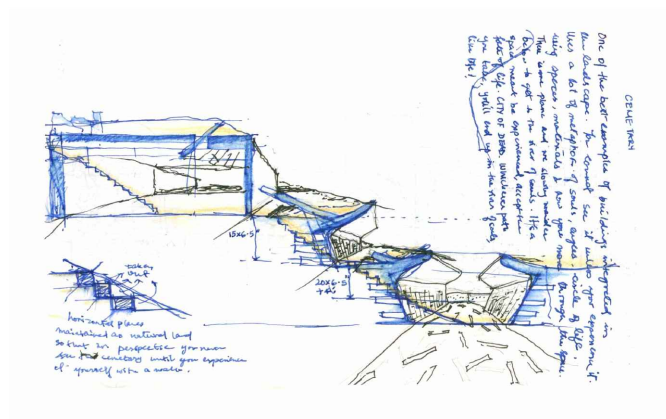 CEMETARY
One of the best examples of buildings integrated in
the landscape. The concept see it when you experience it.
Uses a lot of metaphors of souls, angels, cycle of life.
using spaces, materials & how you move through the space.
There is one plane and we slowly meander
below to get to the river of souls. It's a
space meant to be experienced, accept the
fact of life. CITY OF DEAD. Whichever path
you take, you'll end up in the river of souls
like life!
15x6.5
20x6.5
taken
out
horizontal planes
maintained as natural land
so that in perspective you never
see the cemetery until you experience
it yourself with a walk.